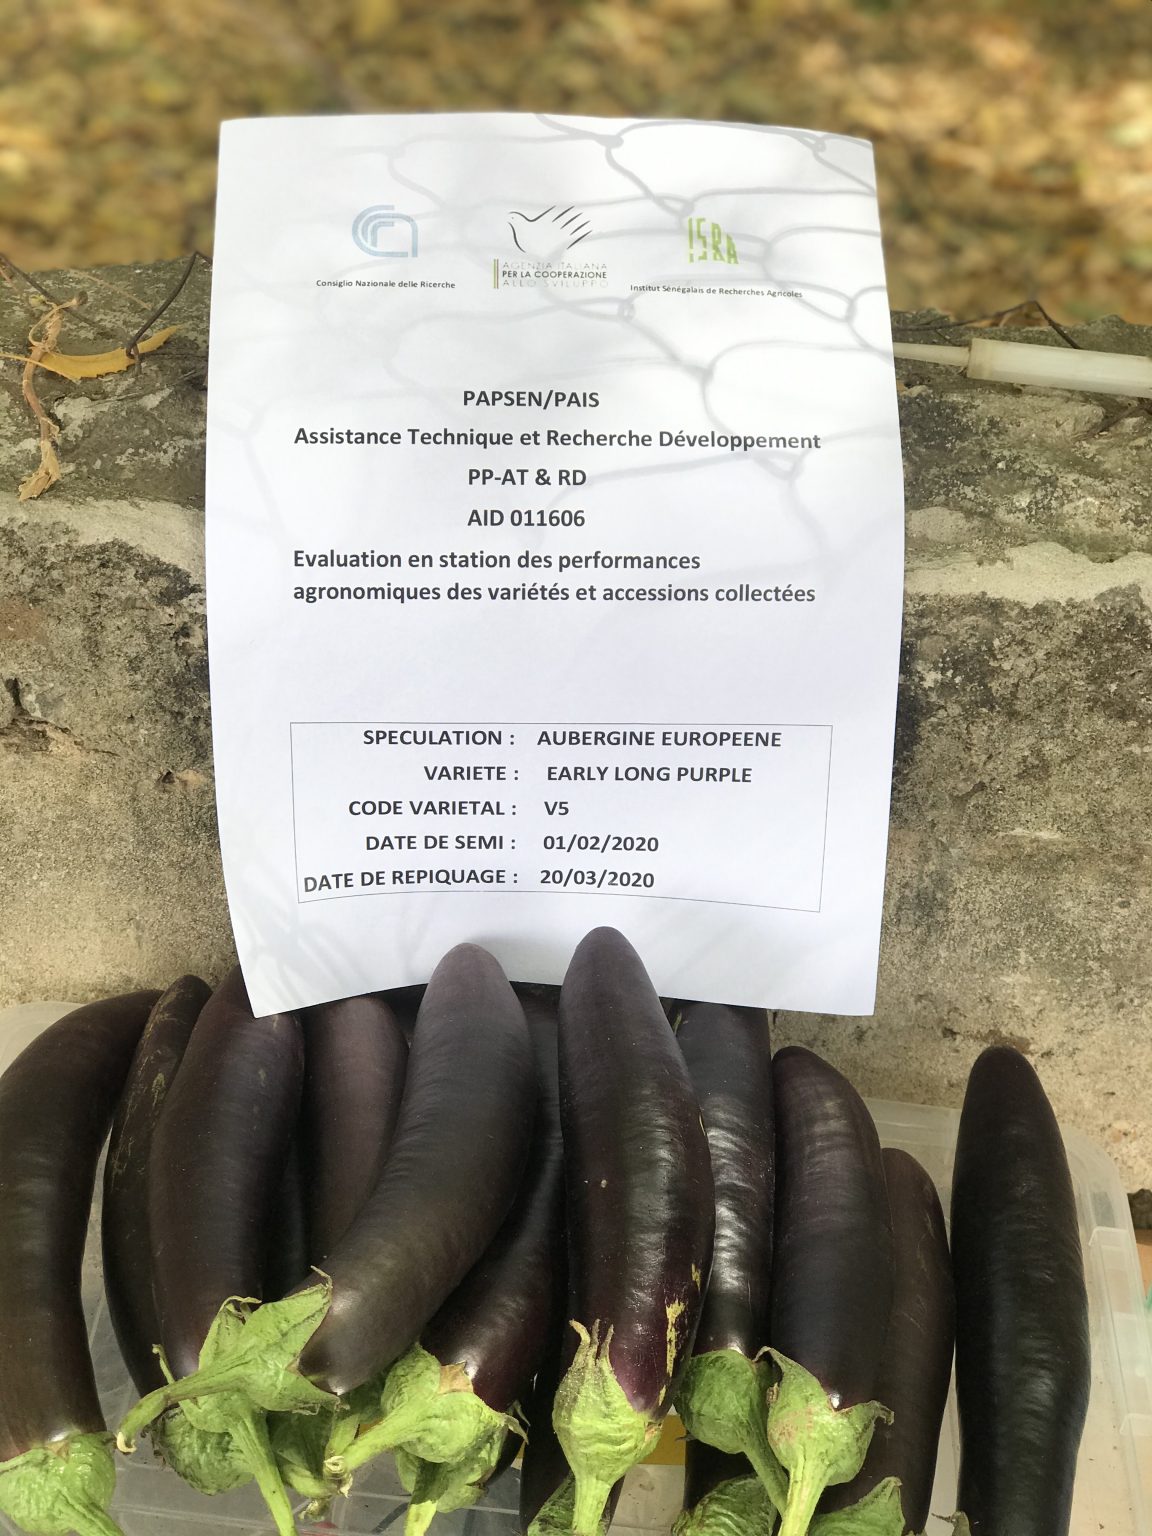 Consiglio Nazionale delle Ricerche
AGENZIA ITALIANA
PER LA COOPERAZIONE
ALLO SVILUPPO
ISRA
Institut Sénégalais de Recherches Agricoles
PAPSEN/PAIS
Assistance Technique et Recherche Développement
PP-AT & RD
AID 011606
Evaluation en station des performances
agronomiques des variétés et accessions collectées
SPECULATION : AUBERGINE EUROPEENE
VARIETE : EARLY LONG PURPLE
CODE VARIETAL : V5
DATE DE SEMI : 01/02/2020
DATE DE REPIQUAGE : 20/03/2020